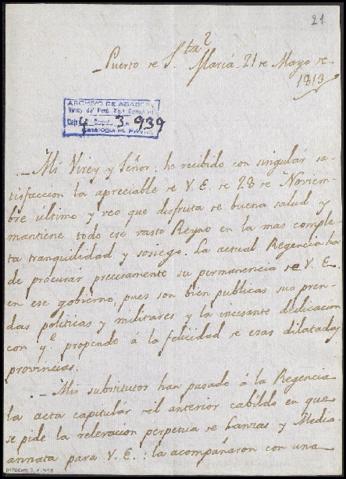 21
Puerto de S.ta
María 21 de Marzo de
1813
ARCHIVO DE ABASCAL
4 3 939
Mi Virey y Señor: he recibido con singular sa-
tisfaccion la apreciable de V.E. de 28 de Noviem-
bre último y veo que disfruta de buena salud y
mantiene todo ese vasto Reyno en la mas comple-
ta tranquilidad y sosiego. La actual Regencia ha
de procurar precisamente su permanencia de V.E.
en ese gobierno, pues son bien publicas sus pren-
das politicas y militares y la incesante dedicacion
con q.e propende á la felicidad de esas dilatadas
provincias.
Mis substitutos han pasado á la Regencia
la acta capitular del anterior cabildo en que
se pide la relevacion perpetua de Lanzas y Media
annata para V.E.: la acompañaron con una